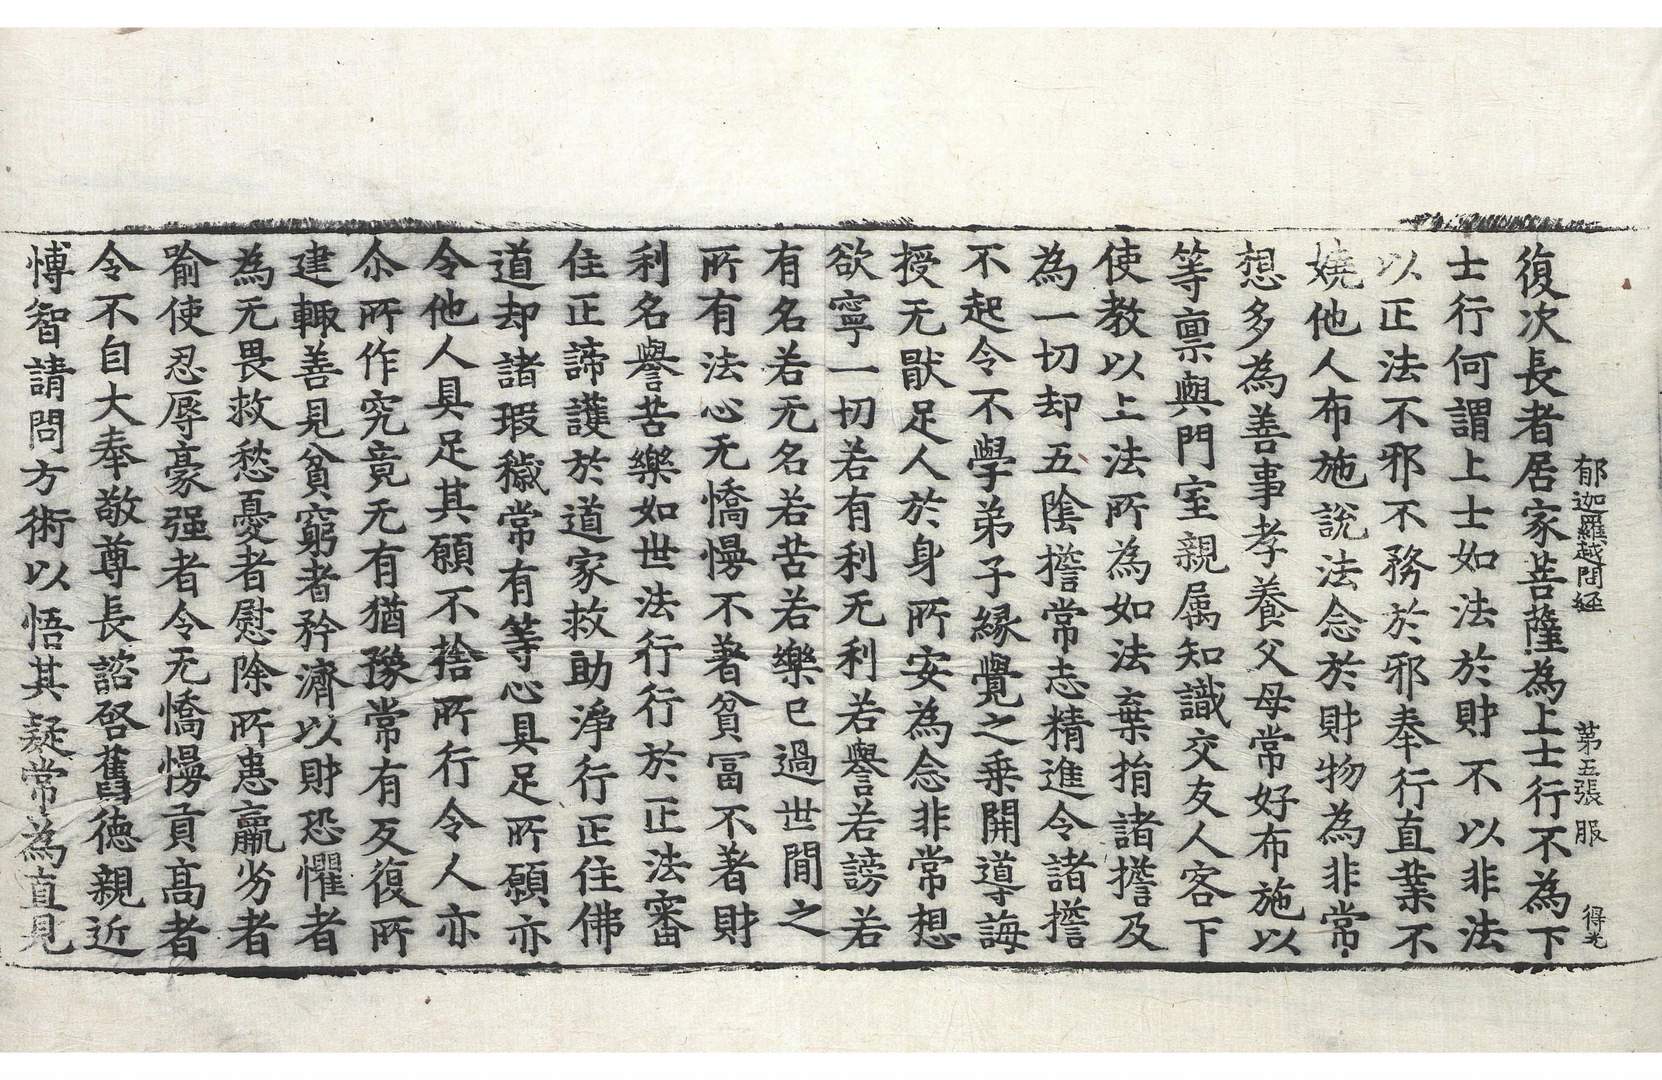 郁迦羅越問經 第五張 服 得光
復次長者居家菩薩為上士行不為下
士行何謂上士如法於財不以非法
以正法不邪不務於邪奉行直業不
嬈他人布施說法念於財物為非常
想多為善事孝養父母常好布施以
等稟與門室親属知識交友人客下
使教以上法所為如法棄捐諸擔及
為一切却五陰擔常志精進令諸擔
不起令不學弟子緣覺之乗開導誨
授无猒足人於身所安為念非常想
欲寧一切若有利无利若譽若謗若
有名若无名若苦若樂已過世間之
所有法心无憍慢不著貧冨不著財
利名譽苦樂如世法行行於正法審
住正諦護於道家救助淨行正住佛
道却諸瑕穢常有等心具足所願亦
令他人具足其願不捨所行令人亦
尒所作究竟无有猶豫常有反復所
建輙善見貧窮者矜濟以財恐懼者
為无畏救愁憂者慰除所患羸劣者
喻使忍辱豪强者令无憍慢貢髙者
令不自大奉敬尊長諮啓舊徳親近
愽智請問方術以悟其疑常為直見